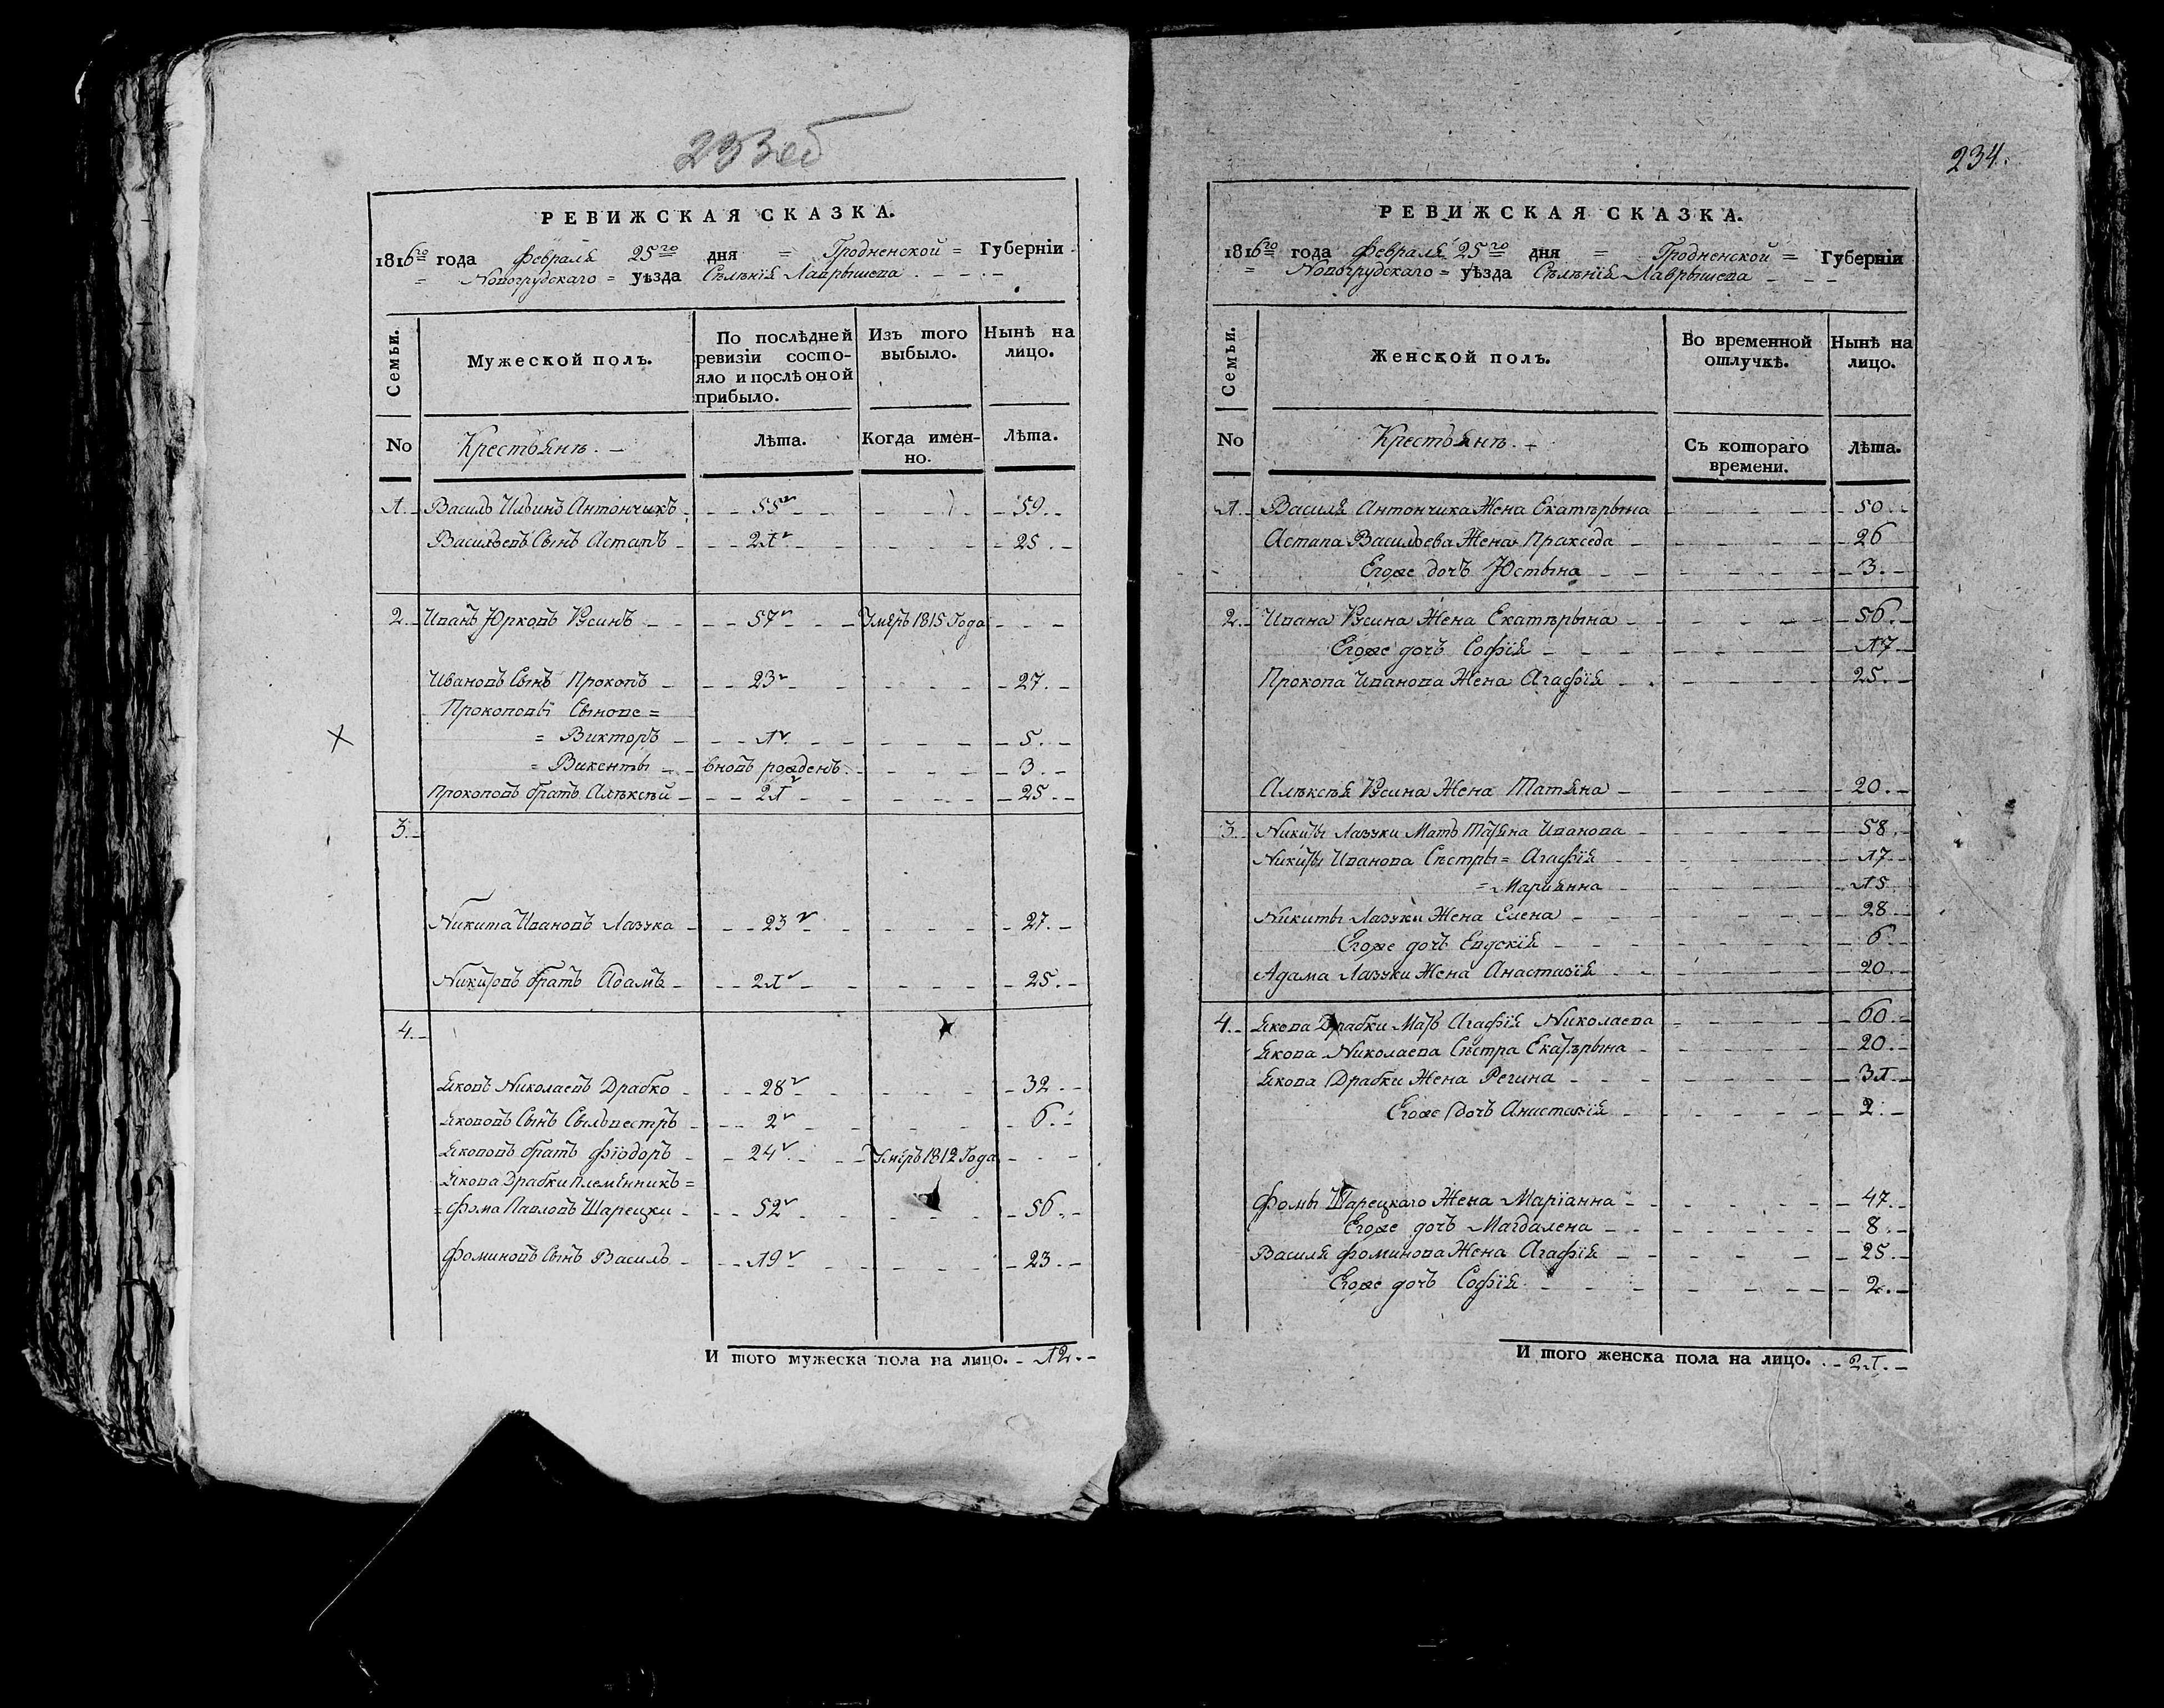 233об
РЕВИЖСКАЯ СКАЗКА.
1816го года Февраля 25го дня = Гродненской = Губерніи
= Новогрудскаго = уѣзда Сѣлѣнія Лаврышева
Семьи. Мужеской полъ. По послѣдней ревизіи состояло и послѣ оной прибыло. Изъ того выбыло. Нынѣ на лицо.
No Крестьянѣ. Лѣта. Когда именно. Лѣта.
1. Василь Ильинъ Антончикъ 55 59.
Васильевъ Сынъ Астапъ 21 25.
2. Иванъ Юрковъ Русинъ 57 Умѣръ 1815 Года
Ивановъ Сынъ Прокопъ 23 27.
Прокоповы Сынове =
= Викторъ 1 5.
= Викенты вновь рожденъ. 3.
Прокоповъ братъ Алѣксѣй 21 25.
3.
Никита Ивановъ Лазука 23 27.
Никитовъ братъ Адамъ 21 25.
4.
Яковъ Николаевъ Драбко 28 32.
Якововъ Сынъ Сыльвестръ 2 6.
Якововъ братъ Фіодоръ 24 Умеръ 1812 Года
Якова Драбки племѣнникъ =
= Фома Павловъ Шарецки 52 56.
Фоминовъ Сынъ Василь 19 23.
И того мужеска пола на лицо. 12.
234.
РЕВИЖСКАЯ СКАЗКА.
1816го года Февраля 25го дня = Гродненской = Губерніи
= Новогрудскаго = уѣзда Сѣлѣнія Лаврышева
Семьи. Женской полъ. Во временной отлучкѣ. Нынѣ на лицо.
No Крестьянѣ. Съ котораго времени. Лѣта.
1. Василя Антончика Жена Екатѣрына 50.
Астапа Васильева Жена Пракседа 26
Егоже дочъ Юстына 3.
2. Ивана Русина Жена Екатѣрына 56.
Егоже дочъ Софія 17
Прокопа Иванова Жена Агафія 25.
Алѣксѣя Русина Жена Татяна 20.
3. Никиты Лазуки Мать Татяна Иванова 58.
Никиты Иванова Сѣстры = Агафія 17
= Марянна 15
Никиты Лазуки Жена Елена 28
Егоже дочъ Евдокія 6
Адама Лазуки Жена Анастазія 20.
4. Якова Драбки Мать Агафія Николаева 60.
Якова Николаева Сѣстра Екатѣрына 20.
Якова Драбки Жена Регина 31
Егоже дочъ Анистазія 2.
Фомы Шарецкаго Жена Маріанна 47.
Егоже дочъ Магдалена 8.
Василя Фоминова Жена Агафія 25.
Егоже дочъ Софія 2.
И того женска пола на лицо. 21.